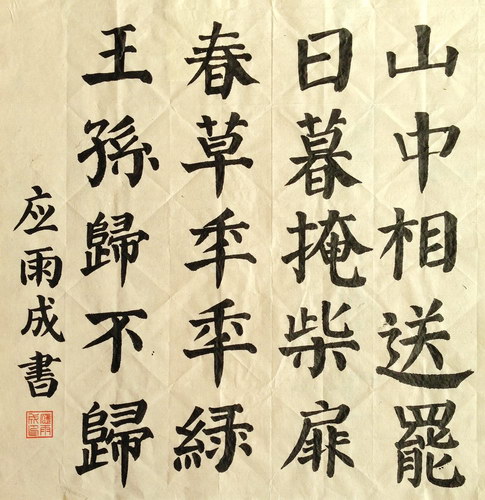 山中相送罷
日暮掩柴扉
春草年年綠
王孫歸不歸
应雨成書